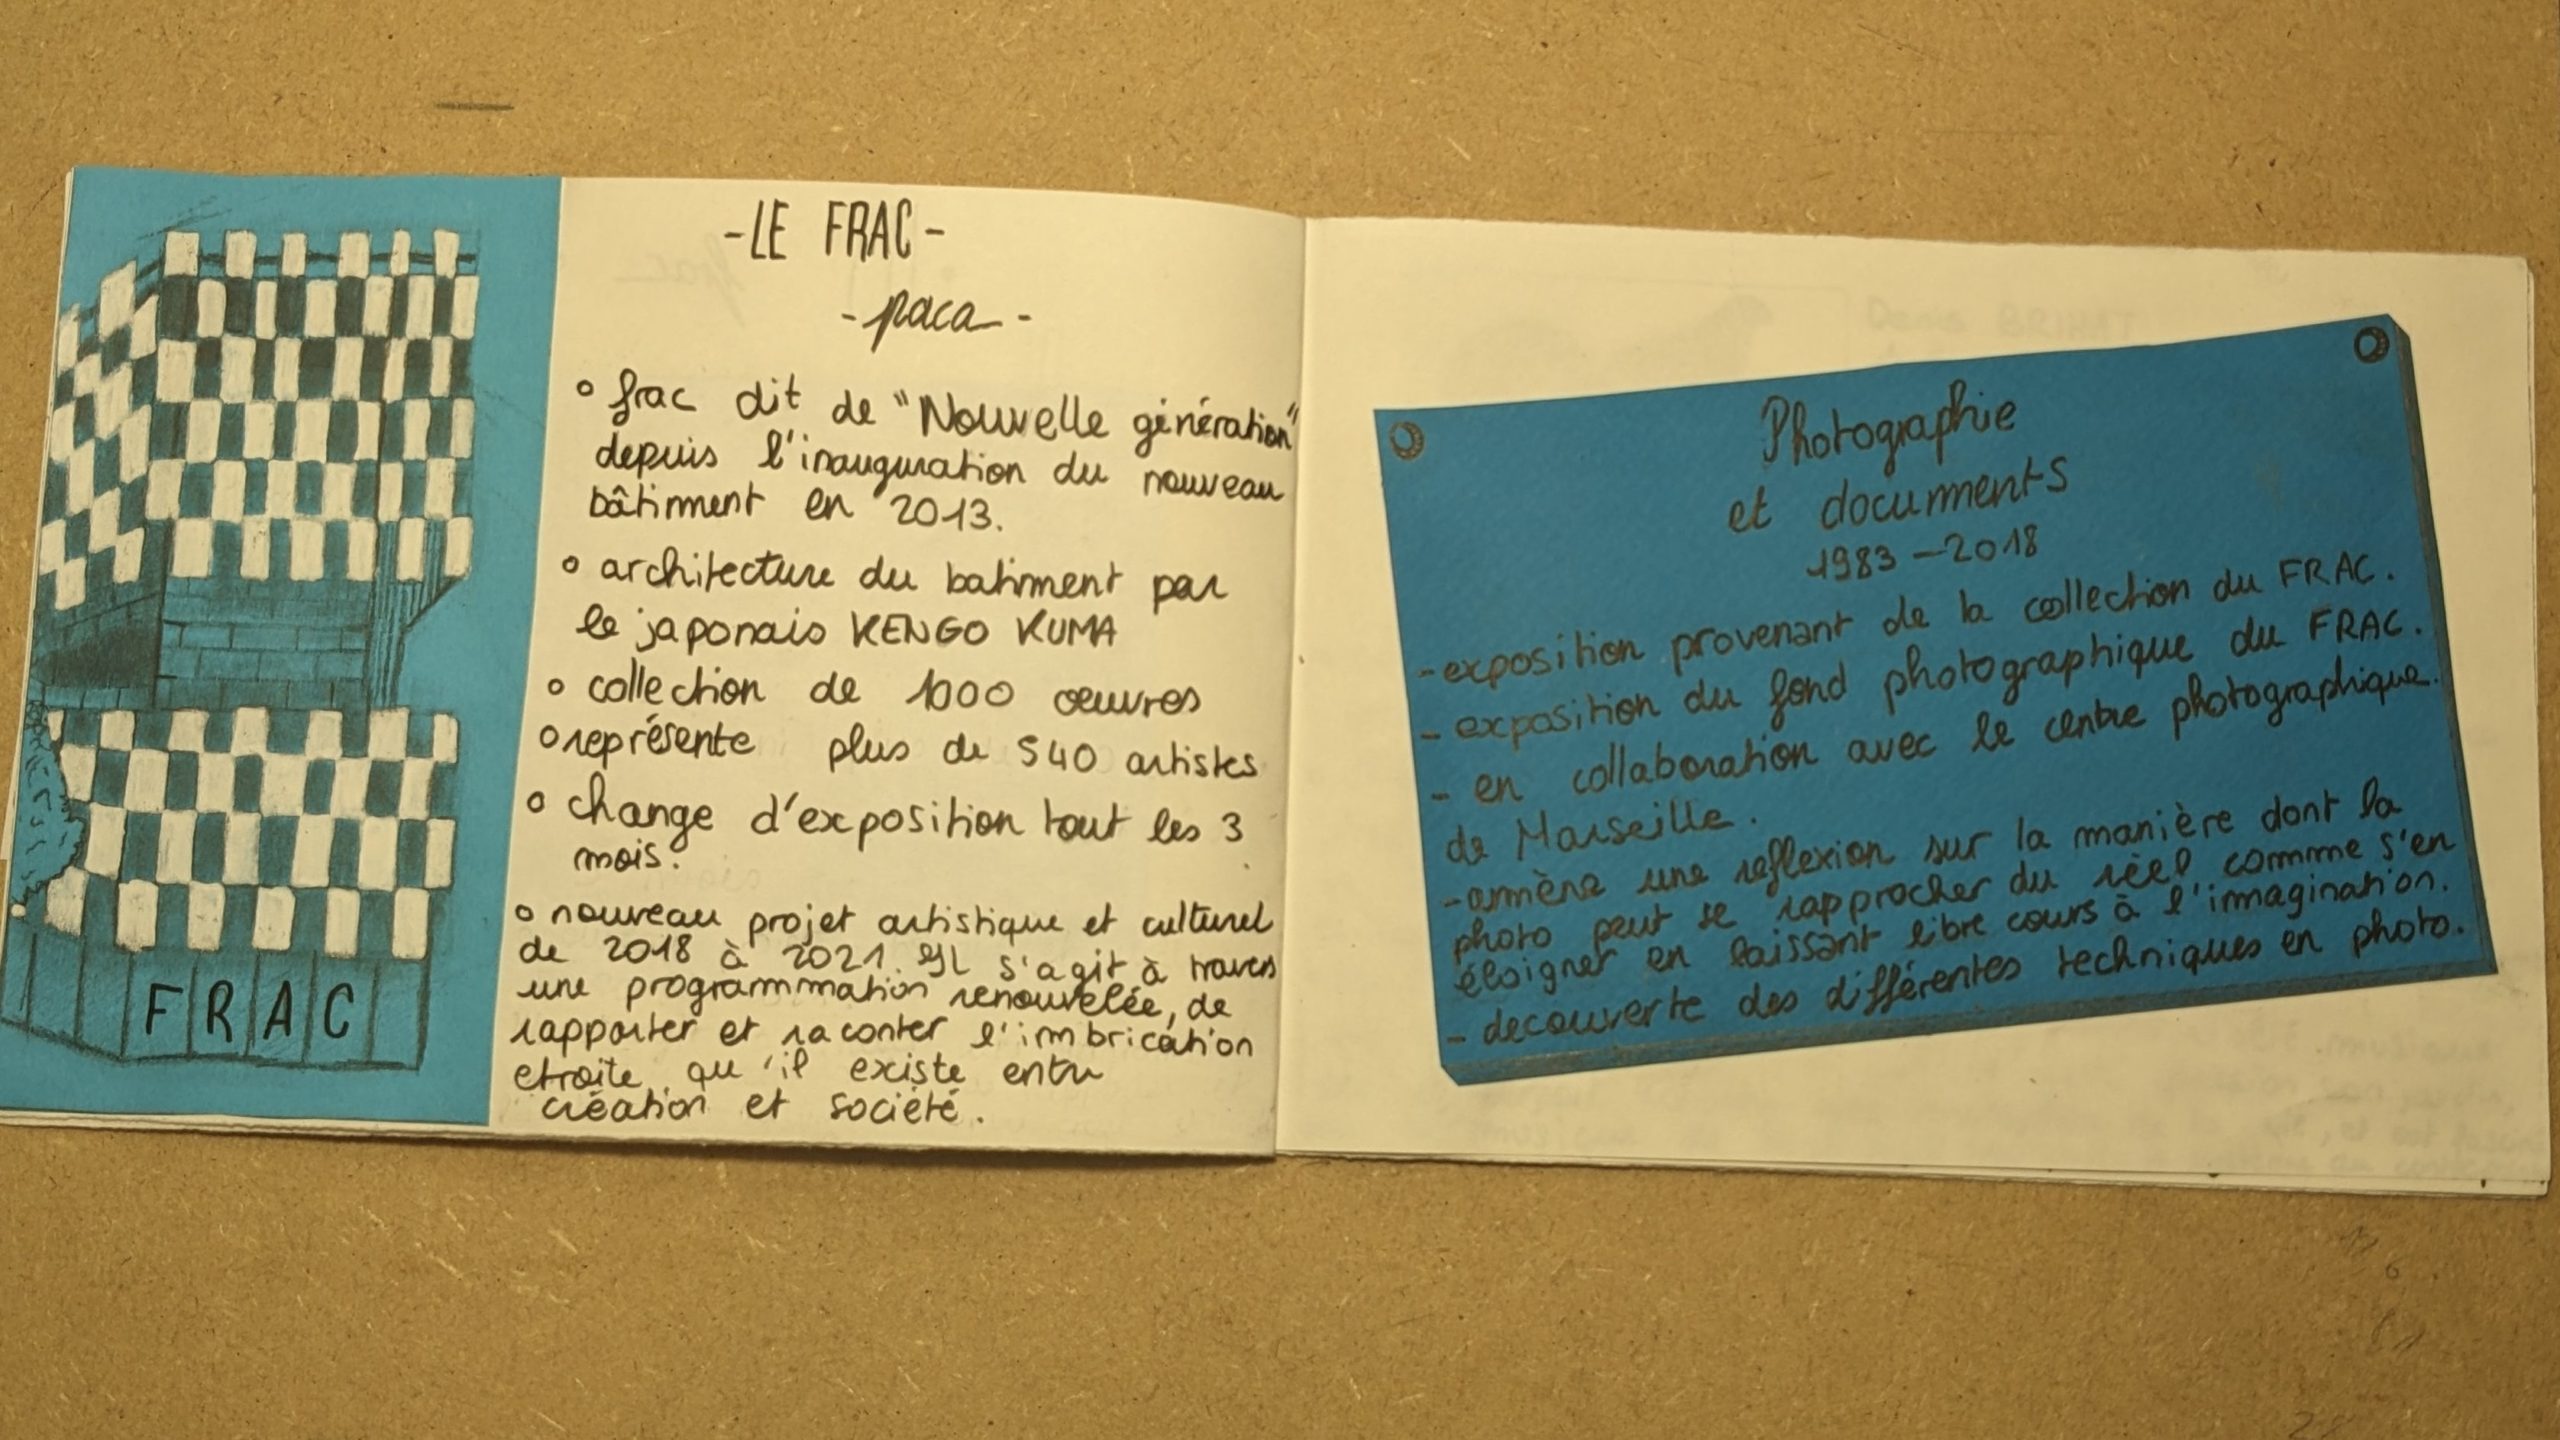 F R A C
- LE FRAC -
- paca -
o frac dit de "Nouvelle génération"
depuis l'inauguration du nouveau
bâtiment en 2013.
o architecture du batiment par
le japonais KENGO KUMA
o collection de 1000 oeuvres
o représente plus de 540 artistes
o change d'exposition tout les 3
mois.
o nouveau projet artistique et culturel
de 2018 à 2021. Il s'agit à travers
une programmation renouvelée, de
rapporter et raconter l'imbrication
etroite qu'il existe entre
création et société.
Photographie
et documents
1983 - 2018
- exposition provenant de la collection du FRAC.
- exposition du fond photographique du FRAC.
- en collaboration avec le centre photographique
de Marseille.
- amène une reflexion sur la manière dont la
photo peut se rapprocher du réel comme s'en
éloigner en laissant libre cours à l'imagination.
- decouverte des différentes techniques en photo.